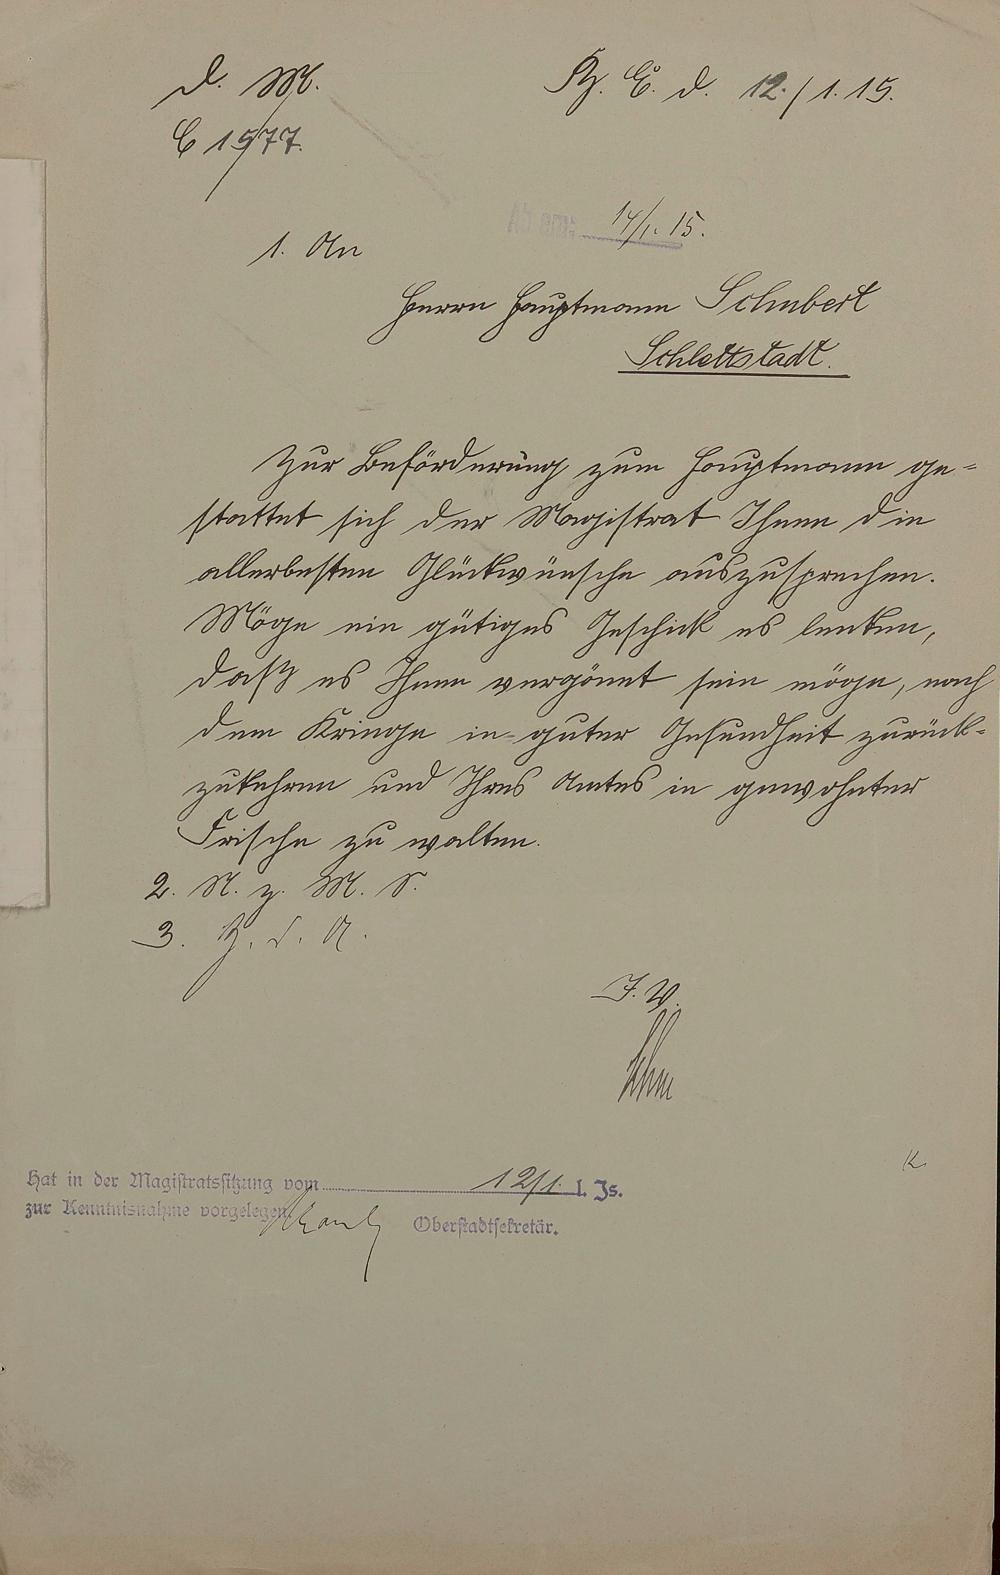 D. M.
C 1577.
Kg. E. d. 12./1.15.
14/1. 15.
1. An
Herrn Hauptmann Schubert
Schlettstadt.
Zur Beförderung zum Hauptmann ge-
stattet sich der Magistrat Ihnen die
allerbesten Glückwünsche auszusprechen.
Möge ein gütiges Geschick es lenken,
daß es Ihnen vergönnt sein möge, nach
dem Kriege in guter Gesundheit zurück-
zukehren und Ihres Amtes in gewohnter
Frische zu walten.
2. N. z. M. S.
3. Z. d. A.
I. V.
Hat in der Magistratssitzung vom 12/1. l. Js.
zur Kenntnisnahme vorgelegen.
Oberstadtsekretär.